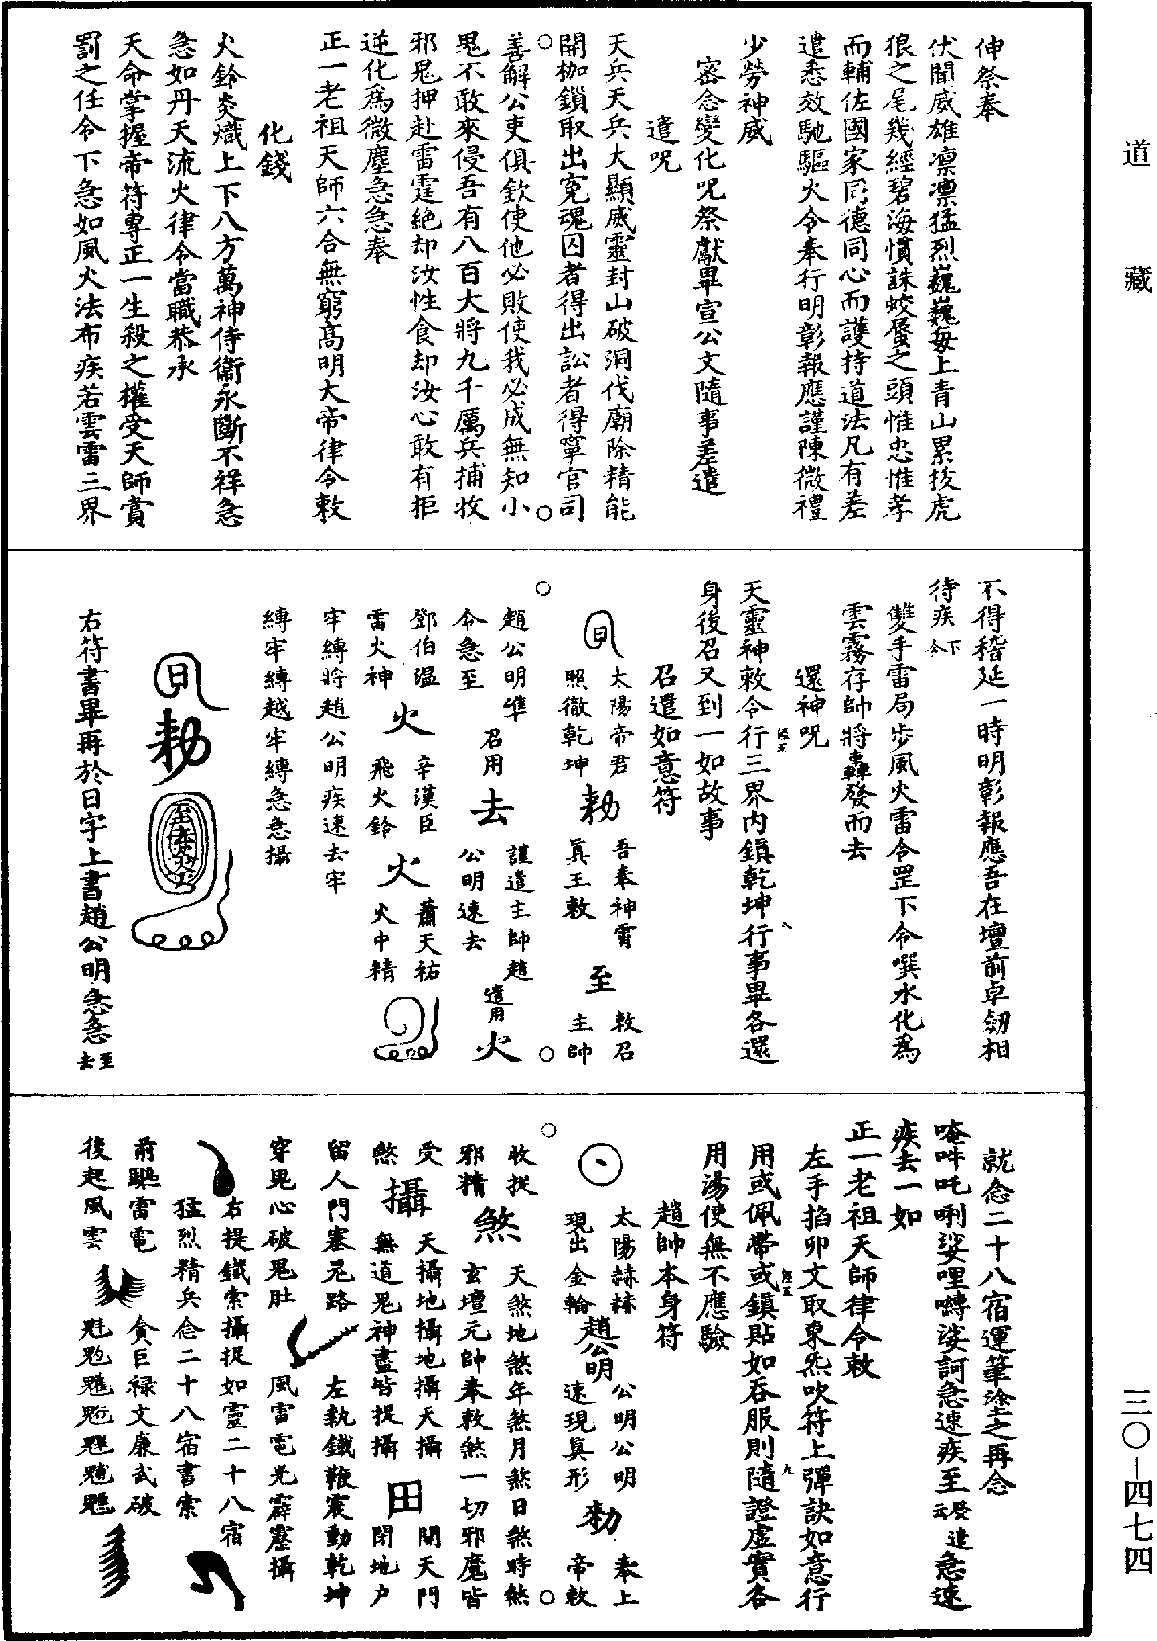 道藏
三〇—四七四
伸祭奉
伏聞威雄凜凜猛烈巍巍每上青山累拔虎
狼之尾幾經碧海慣誅蛟蜃之頭惟忠惟孝
而輔佐國家同德同心而護持道法凡有差
遣悉效馳驅火令奉行明彰報應謹陳微禮
少勞神威
密念變化呪祭獻畢宣公文隨事差遣
遣呪
天兵天兵大顯威靈封山破洞伐廟除精能
開枷鎖取出冤魂囚者得出訟者得寧官司
善解公吏俱欽使他必敗使我必成無知小
鬼不敢來侵吾有八百大將九千厲兵捕收
邪鬼押赴雷霆絕却汝性食却汝心敢有拒
逆化爲微塵急急奉
正一老祖天師六合無窮高明大帝律令敕
化錢
火鈴炎熾上下八方萬神侍衞永斷不祥急
急如丹天流火律令當職恭承
天命掌握帝符專正一生殺之權受天師賞
罰之任令下急如風火法布疾若雲雷三界
不得稽延一時明彰報應吾在壇前卓劒相
待疾下令
雙手雷局步風火雷令罡下令噀水化爲
雲霧存帥將轟發而去
還神呪
天靈神敕令行三界內鎮乾坤行事畢各還
身後召又到一如故事
召遣如意符
太陽帝君
照徹乾坤
勑
吾奉神霄
眞王敕
至
敕召
主帥
趙公明準
令急至
召用
去
謹遣主帥趙
公明速去
遣用
火
鄧伯溫
雷火神
火
辛漢臣
飛火鈴
火
蕭天祐
火中精
牢縛將趙公明疾速去牢
縛牢縛越牢縛急急攝
勑
右符書畢再於日字上書趙公明急急至去
就念二十八宿運筆塗之再念
唵吽吒唎娑哩嚩娑訶急速疾至發云遣急速
疾去一如
正一老祖天師律令敕
左手掐卯文取炁吹符上彈訣如意行
用或佩帶或鎮貼如吞服則隨證虛實各
用湯使無不應驗
趙帥本身符
太陽赫赫
現出金輪
趙公明
公明公明
速現眞形
勑
奉上
帝敕
收捉
邪精
煞
天煞地煞年煞月煞日煞時煞
玄壇元帥奉敕煞一切邪魔皆
受
煞
攝
天攝地攝地攝天攝
無道鬼神盡皆提攝
田
開天門
閉地户
留人門塞鬼路
左執鐵鞭震動乾坤
穿鬼心破鬼肚
風雷電光霹靂攝
右提鐵索攝捉如靈二十八宿
猛烈精兵念二十八宿書索
前驅雷電
後起風雲
貪巨祿文廉武破